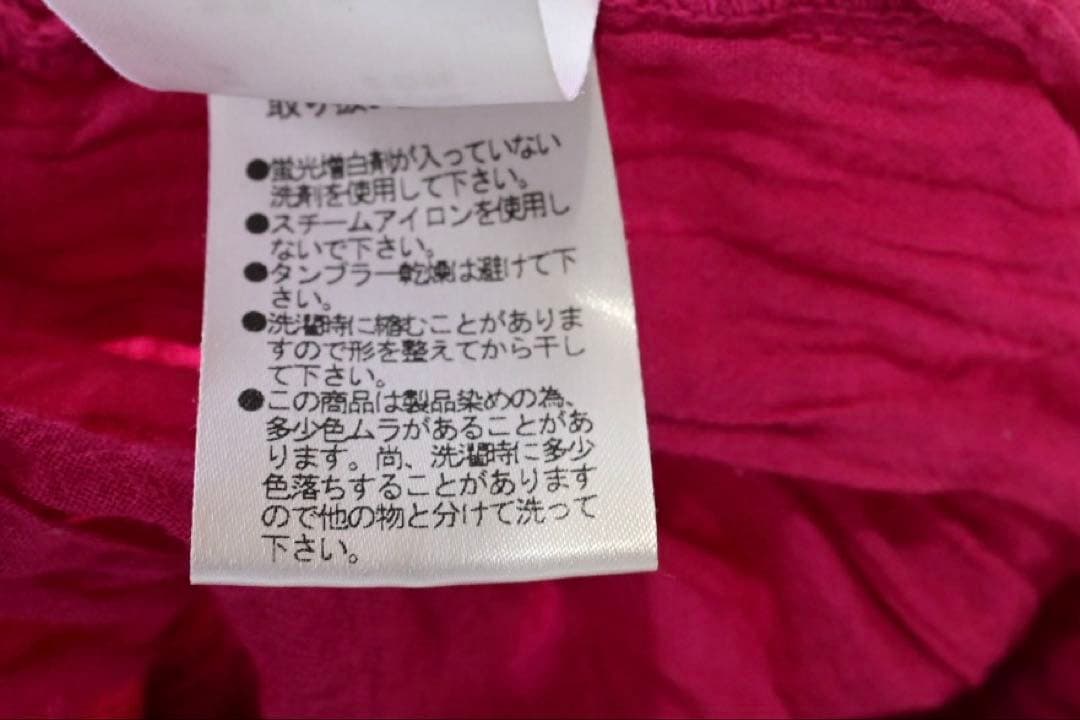 取り扱
●蛍光増白剤が入っていない
洗剤を使用して下さい。
●スチームアイロンを使用し
ないで下さい。
●タンブラー乾燥は避けて下
さい。
●洗濯時に縮むことがありま
すので形を整えてから干し
て下さい。
●この商品は製品染めの為、
多少色ムラがあることがあ
ります。尚、洗濯時に多少
色落ちすることがあります
ので他の物と分けて洗って
下さい。